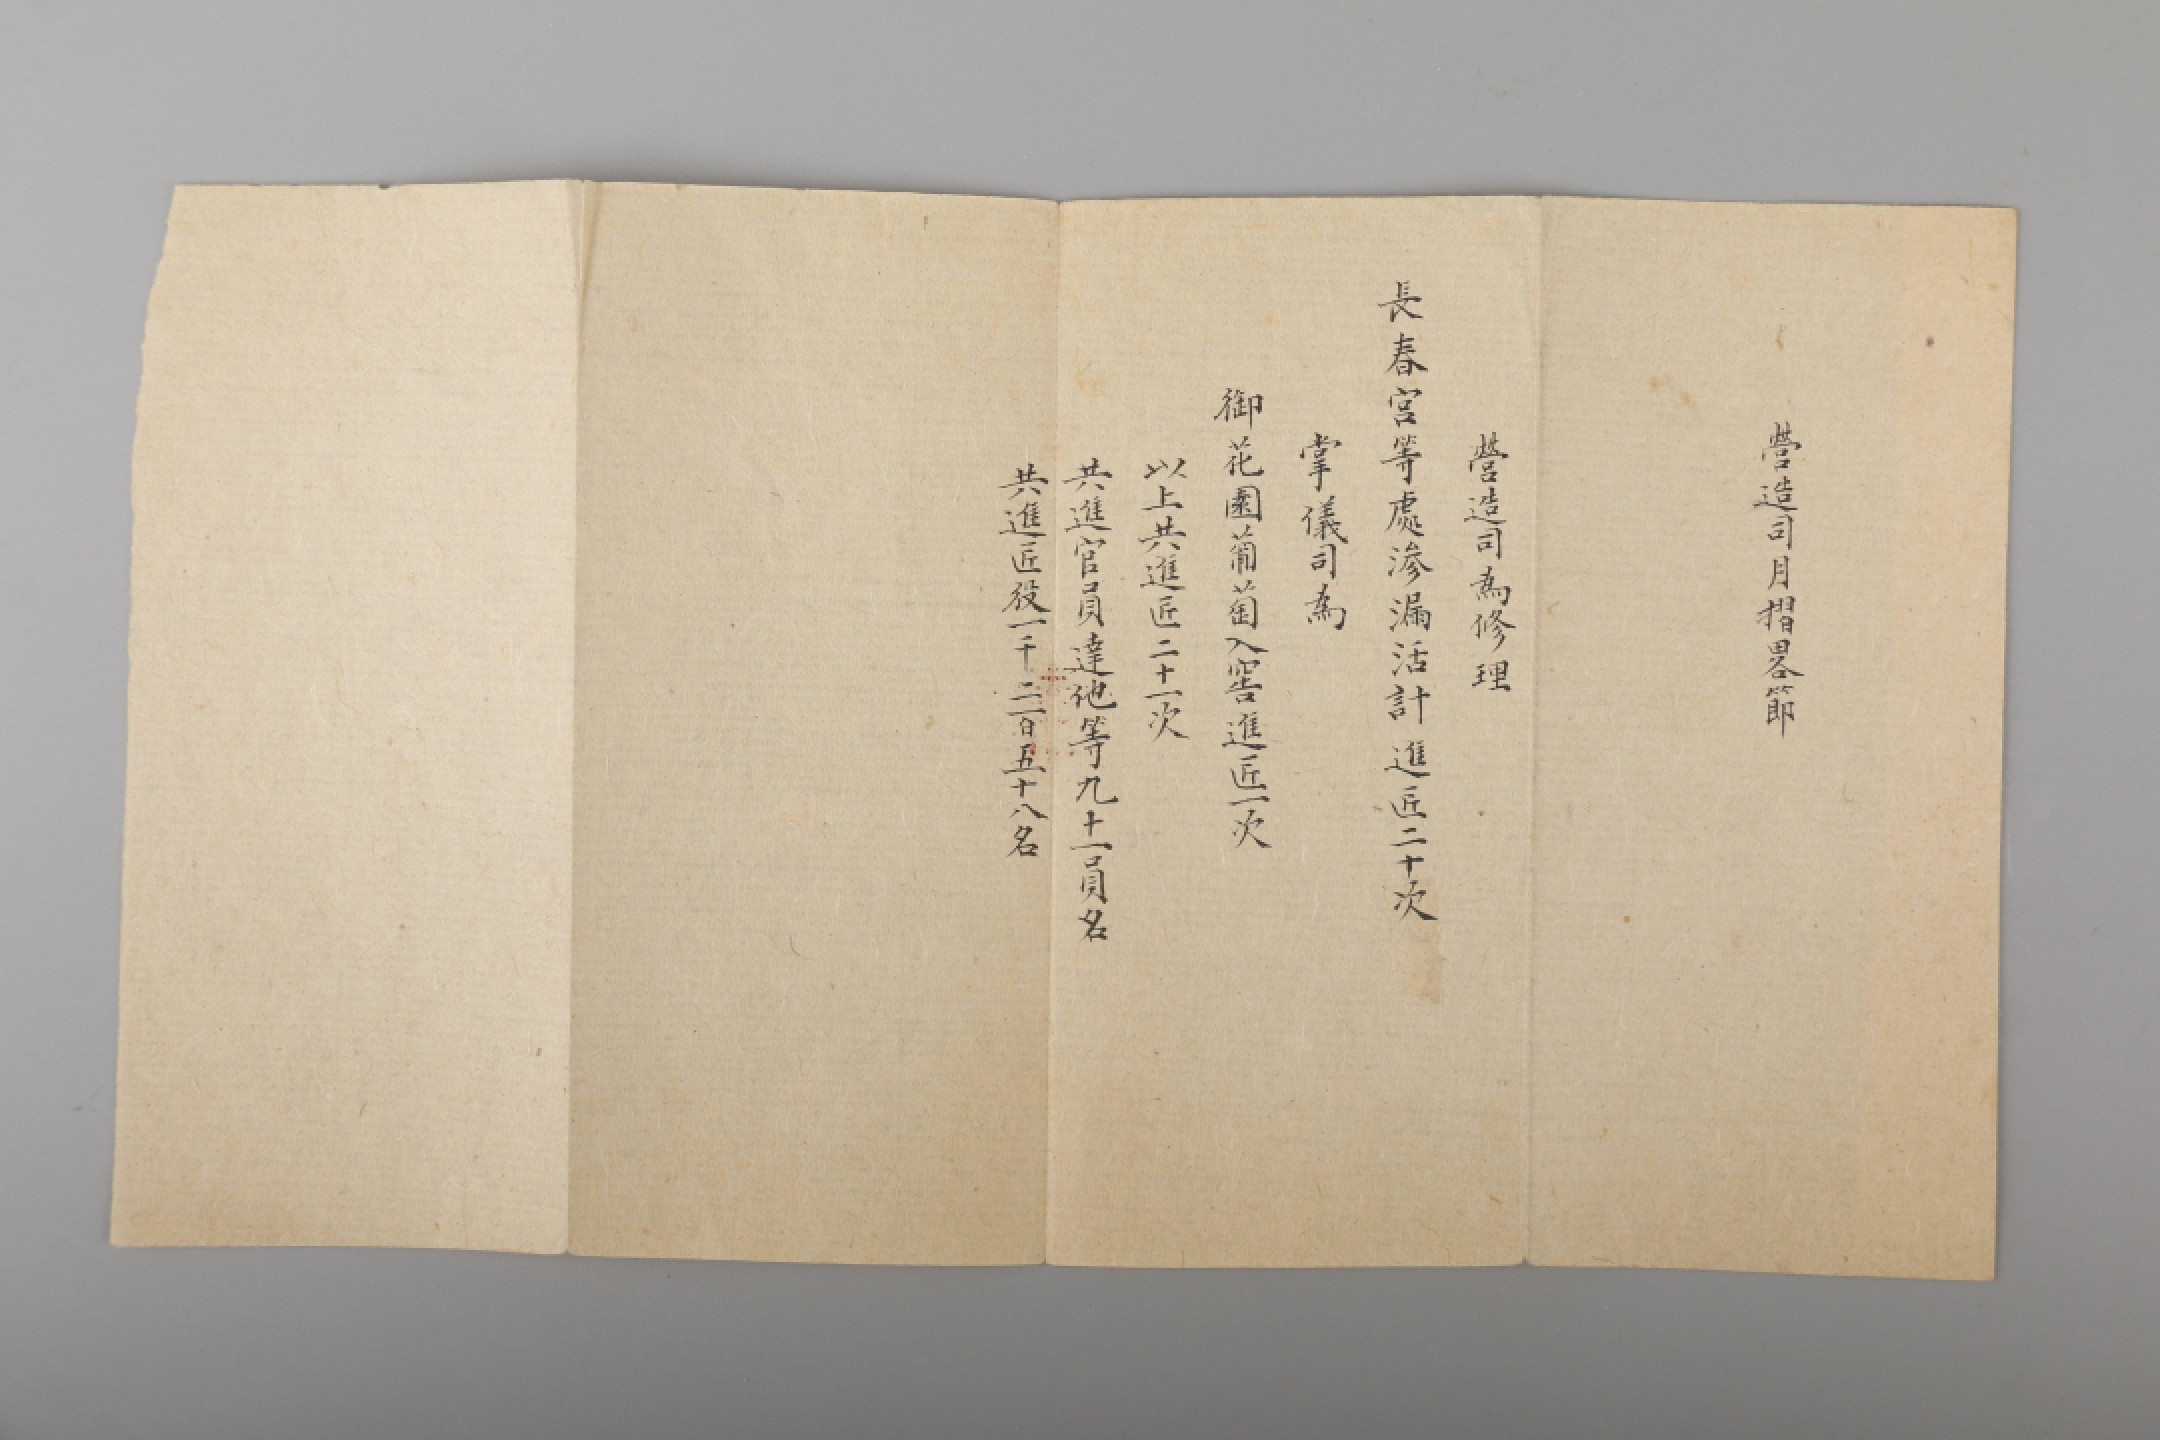 營造司月摺畧節
營造司為修理
長春宮等處滲漏活計進匠二十次
掌儀司為
御花園葡萄入窖進匠一次
以上共進匠二十一次
共進官員達他等九十一員名
共進匠役一千二百五十八名